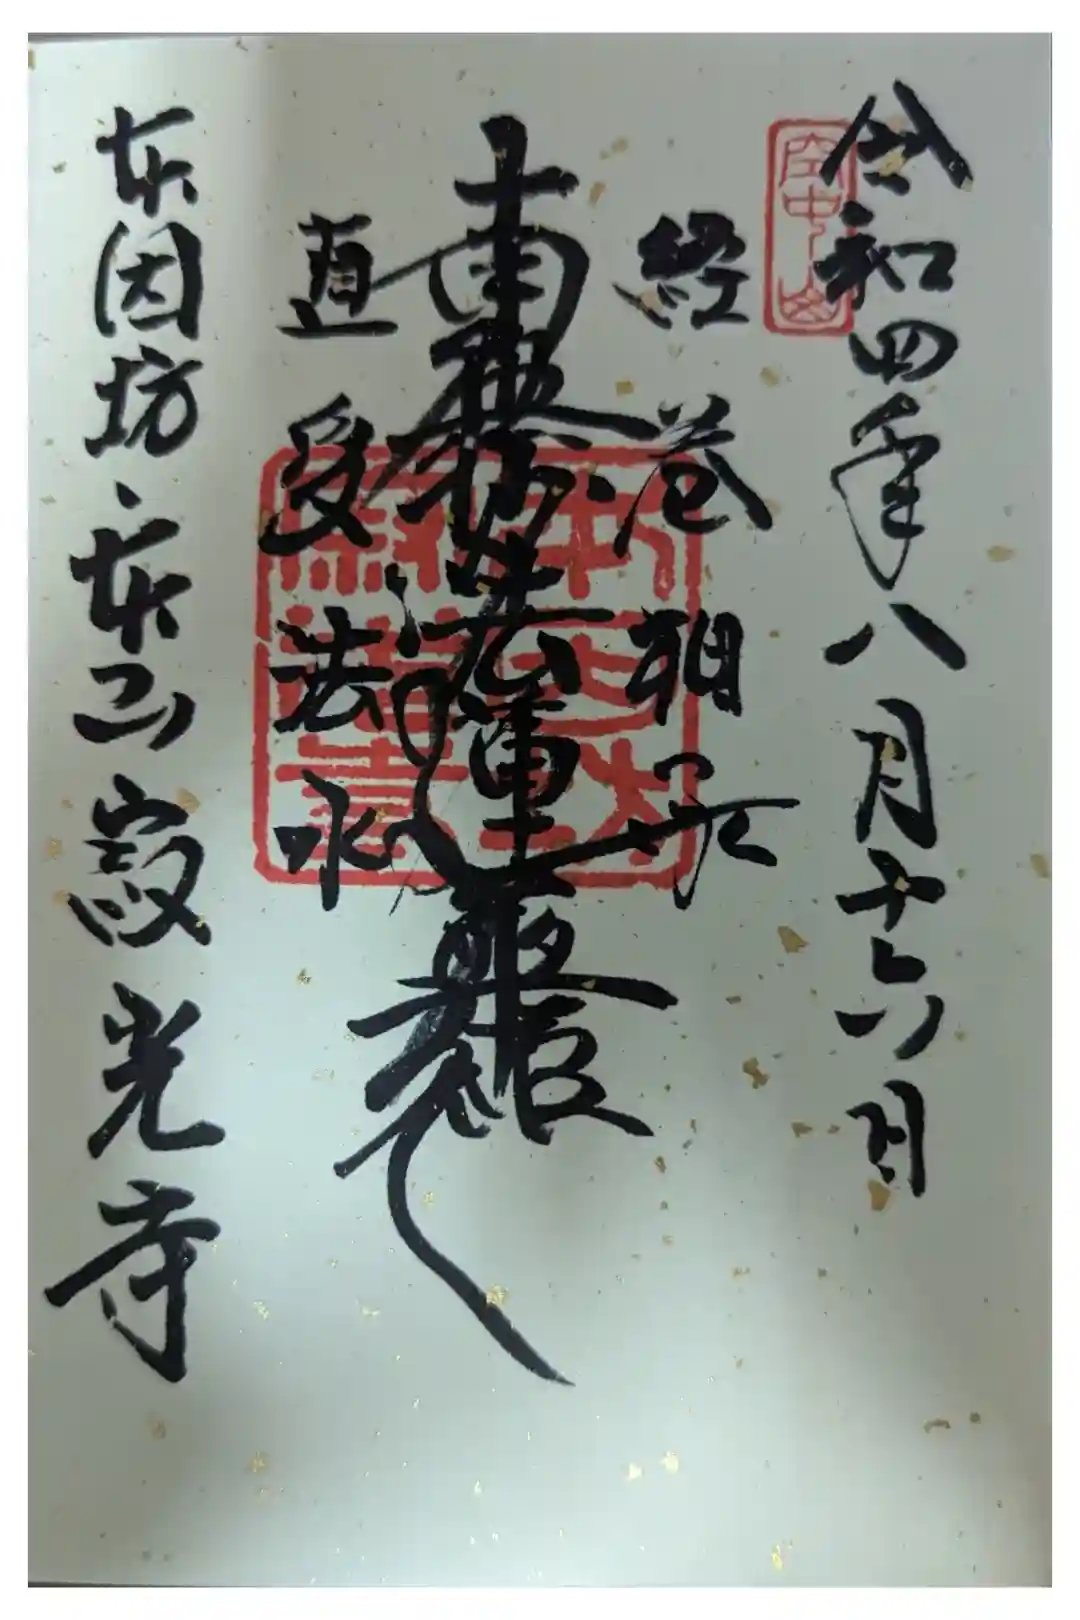 令和四年八月十六日
空中山
経巻相承
南無妙法蓮華経
直受法水
本因坊 本山 寂光寺